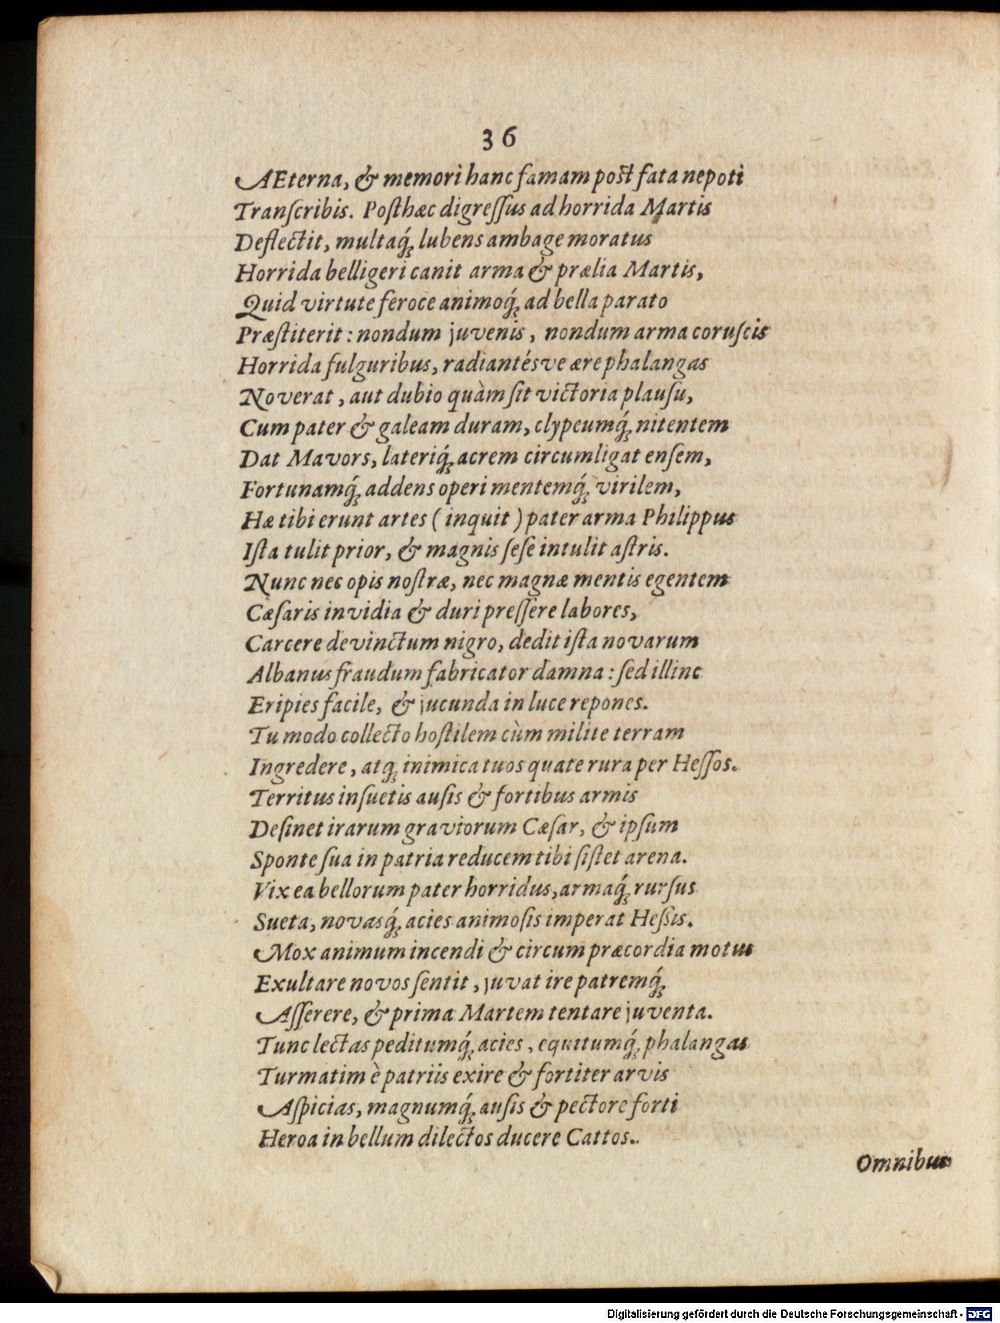 36
AEterna, & memori hanc famam post fata nepoti
Tranſcribis. Poſthæc digreſſus ad horrida Martis
Deflectit, multaq́; lubens ambage moratus
Horrida belligeri canit arma & prælia Martis,
Quid virtute feroce animoq́; ad bella parato
Præſtiterit: nondum juvenis, nondum arma coruſcis
Horrida fulguribus, radiantésve ære phalangas
Noverat, aut dubio quàm ſit victoria plauſu,
Cum pater & galeam duram, clypeumq́; nitentem
Dat Mavors, lateriq́; acrem circumligat enſem,
Fortunamq́; addens operi mentemq́; virilem,
Hæ tibi erunt artes (inquit) pater arma Philippus
Iſta tulit prior, & magnis ſeſe intulit aſtris.
Nunc nec opis noſtræ, nec magnæ mentis egentem
Cæſaris invidia & duri preſſere labores,
Carcere devinctum nigro, dedit iſta novarum
Albanus fraudum fabricator damna: ſed illinc
Eripies facile, & jucunda in luce repones.
Tu modo collecto hoſtilem cùm milite terram
Ingredere, atq; inimica tuos quate rura per Heſſos.
Territus inſuetis auſis & fortibus armis
Deſinet irarum graviorum Cæſar, & ipſum
Sponte ſua in patria reducem tibi ſiſtet arena.
Vix ea bellorum pater horridus, armaq́; rurſus
Sueta, novasq́; acies animoſis imperat Heſſis.
Mox animum incendi & circum præcordia motus
Exultare novos ſentit, juvat ire patremq́;
Aſſerere, & prima Martem tentare juventa.
Tunc lectas peditumq́; acies, equitumq́; phalangas
Turmatim è patriis exire & fortiter arvis
Aſpicias, magnumq́; auſis & pectore forti
Heroa in bellum dilectos ducere Cattos.
Omnibus
Digitalisierung gefördert durch die Deutsche Forschungsgemeinschaft - DFG